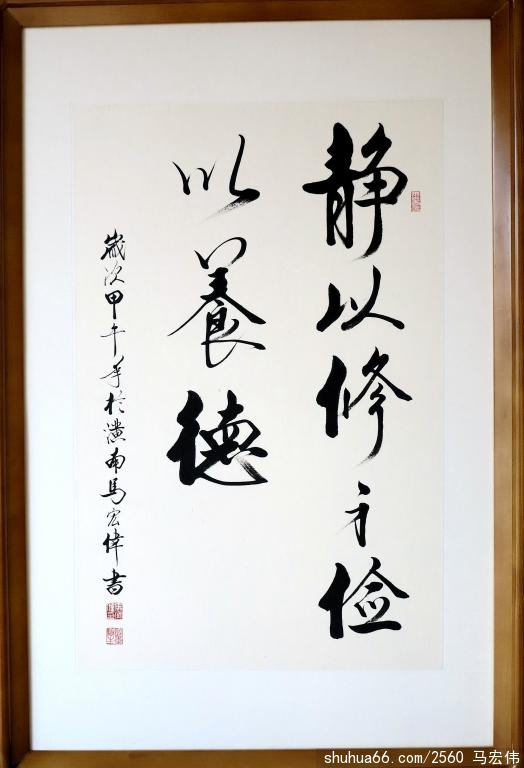 静以修身俭
以養德
歲次甲午年於潢南馬宏偉書
shuhua66.com/2560 马宏伟